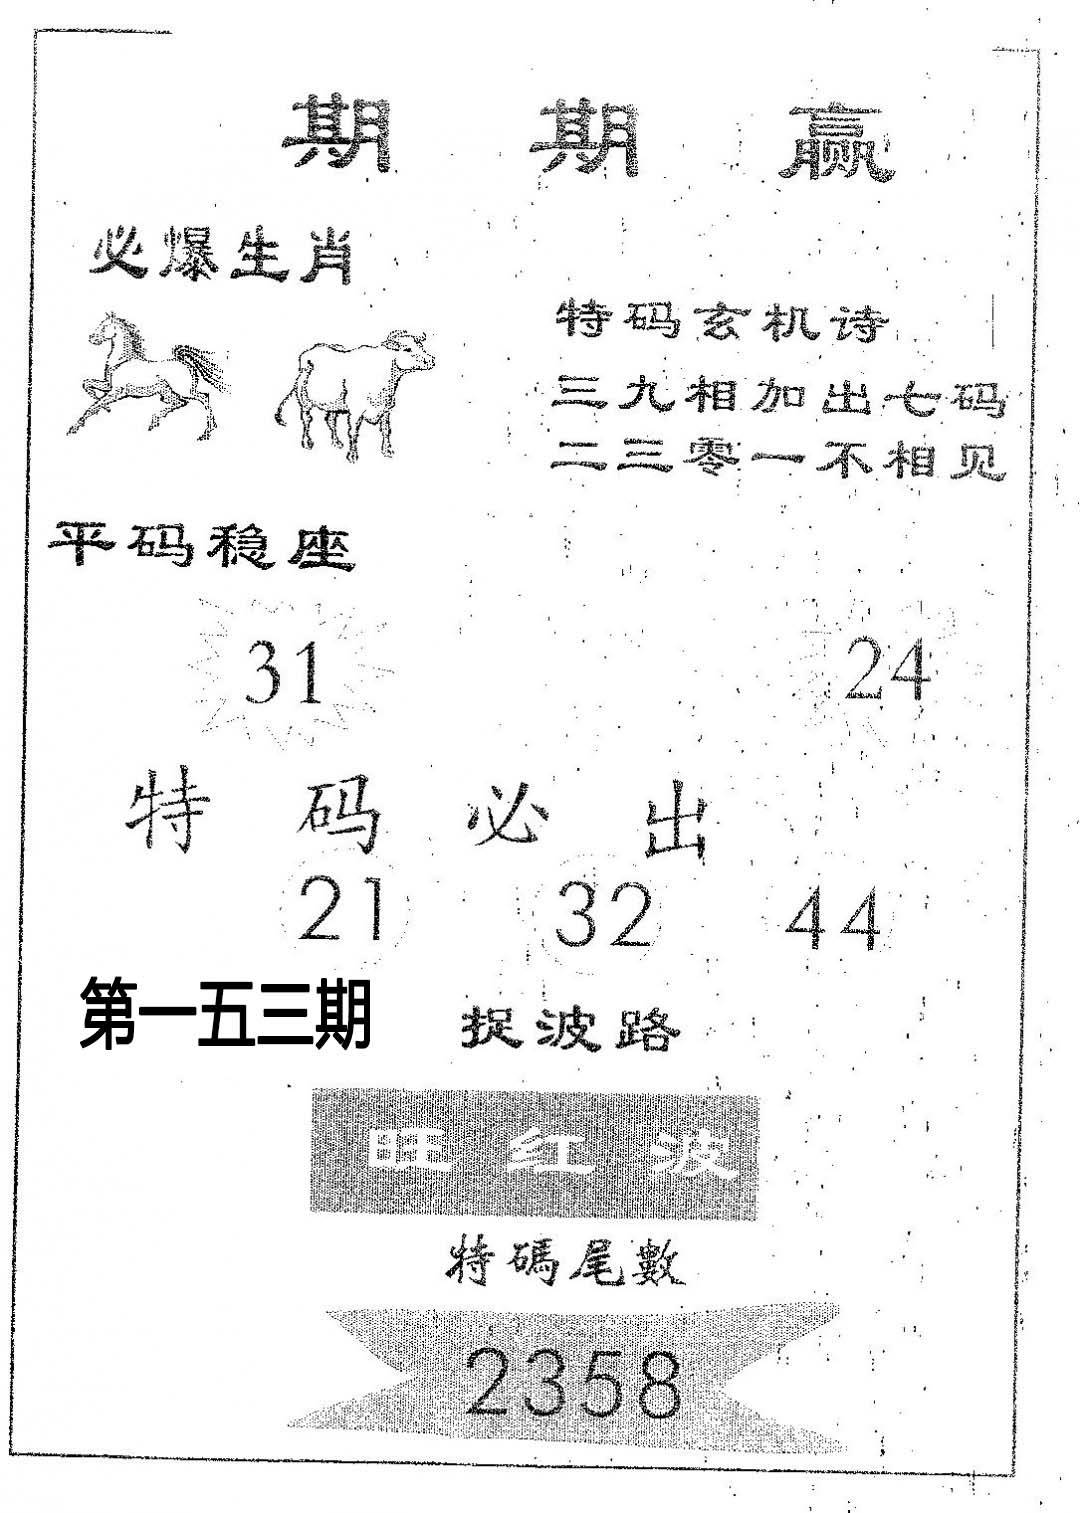 期期赢
必爆生肖
特码玄机诗
三九相加出七码
二三零一不相见
平码稳座
31 24
特码必出
21 32 44
第一五三期
捉波路
旺红波
特碼尾數
2358